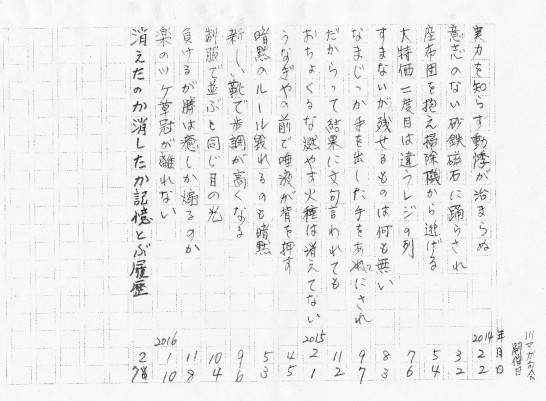 川マガ句会
開催日
年月日
実力を知らす動悸が治まらぬ 2014 2 2
意志のない砂鉄磁石に踊らされ 3 2
座布団を抱え掃除機から逃げる 5 4
大特価二度目は違うレジの列 7 6
すまないが残せるものは何も無い 8 3
なまじっか手を出した手を にされ 9 7
だからって結果に文句言われても 11 2
おちょくるな燃やす火種は消えてない 2015 2 1
うなぎやの前で唾液が背を押す 4 5
暗黙のルール毀れるのも暗黙 5 3
新しい靴で歩調が高くなる 9 6
制服で並ぶと同じ目の光 10 4
負けるが勝は癒しか煽るのか 11 8
楽のツケ草冠が離れない 2016 1 10
消えたのか消したか記憶とぶ履歴 2